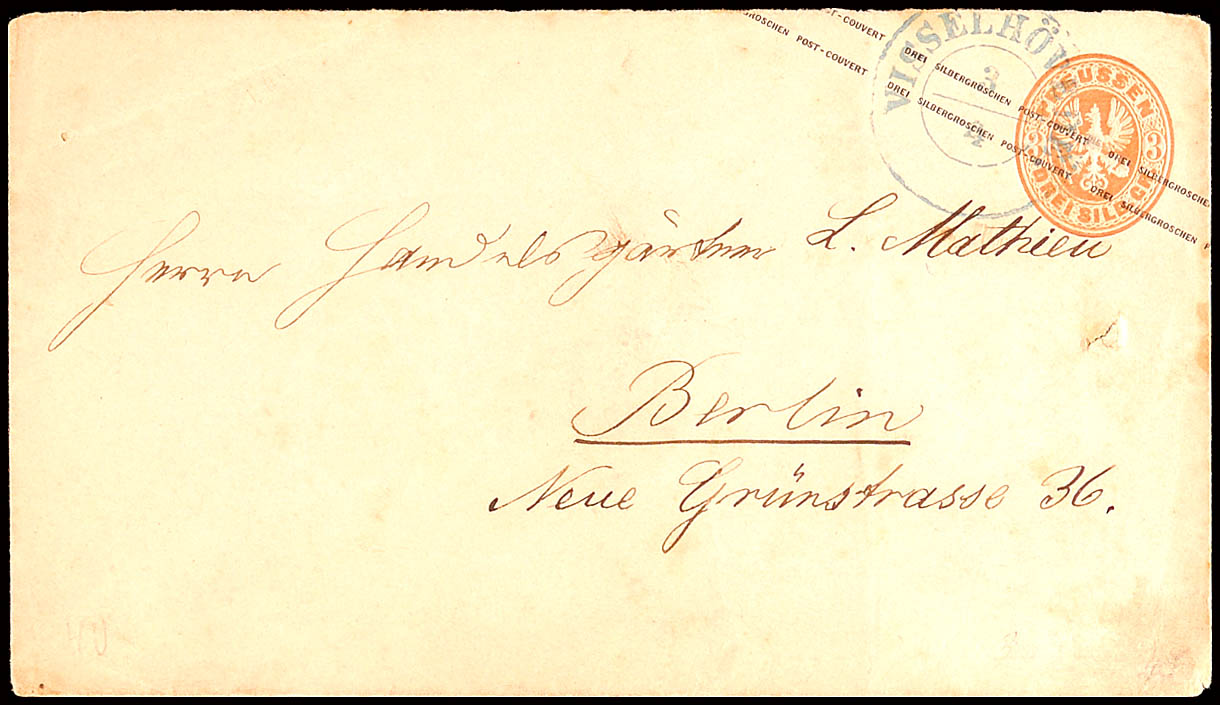 GROSCHEN POST-COUVERT DREI SILBERGROSCHEN POST-COUVERT DREI SILBERGROSCHEN
POST-COUVERT DREI SILBERGROSCHEN POST-COUVERT DREI SILBERGROSCHEN
VISSELHÖVEDE
3
PREUSSEN
3 3
DREI SILB. GR.
Herrn Handelsgärtner L. Mathieu
Berlin
Neue Grünstrasse 36.